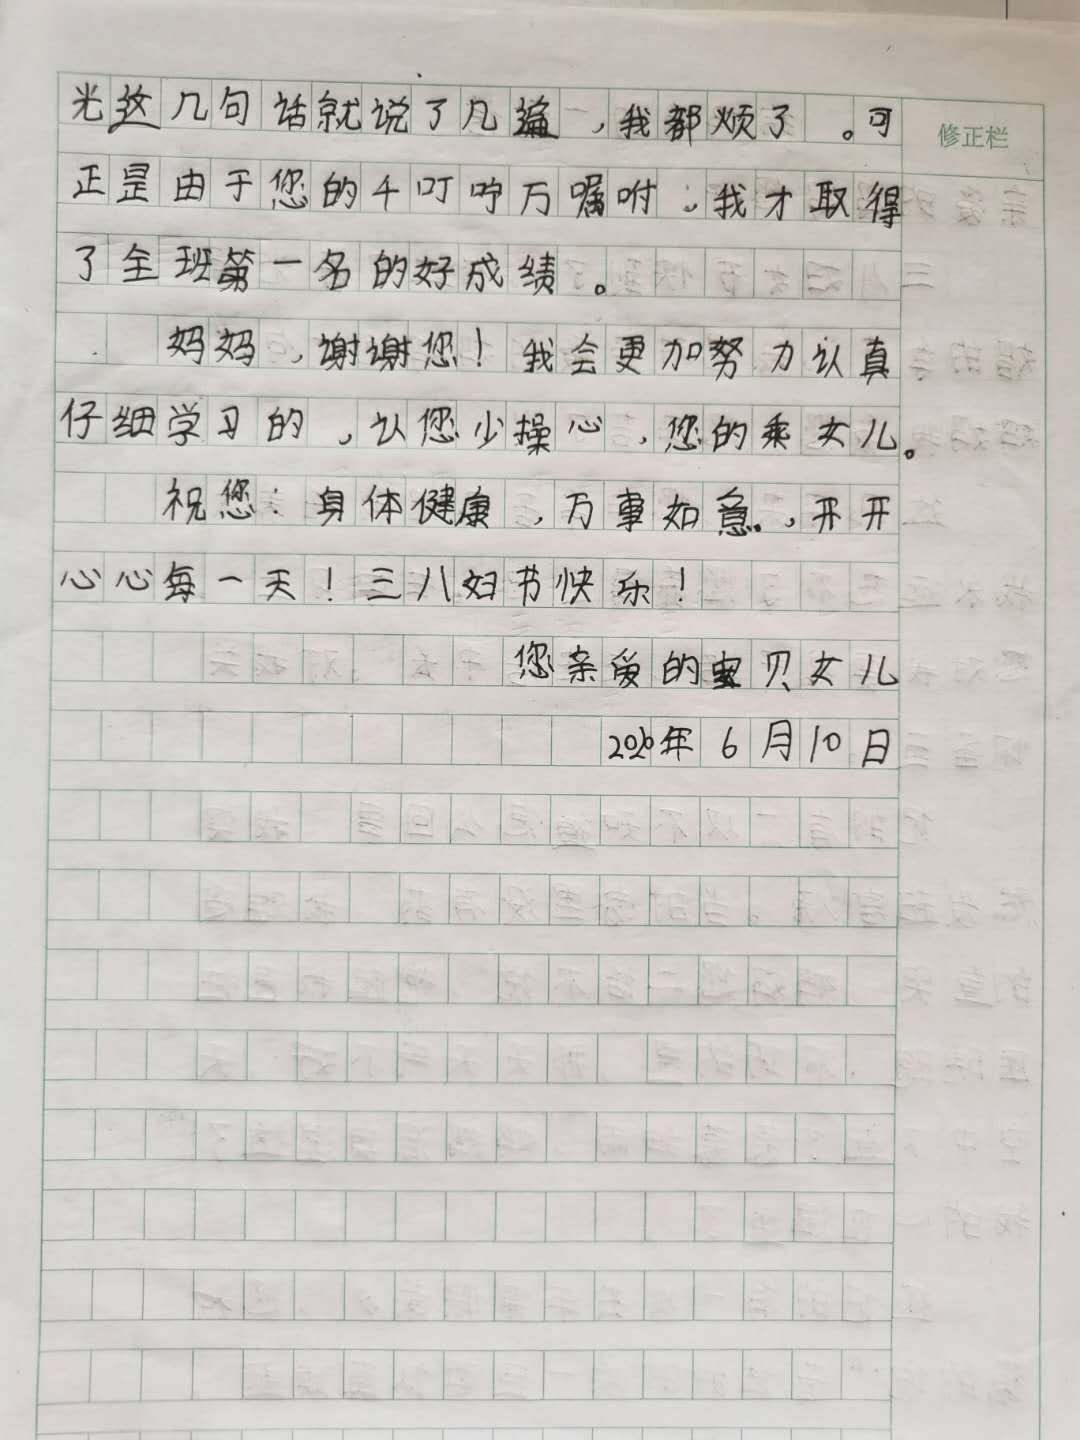 光这几句话就说了几遍，我都烦了。可
修正栏
正是由于您的千叮咛万嘱咐，我才取得
了全班第一名的好成绩。
妈妈，谢谢您！我会更加努力认真
仔细学习的，认您少操心，您的乘女儿。
祝您：身体健康，万事如意，开开
心心每一天！三八妇节快乐！
您亲爱的宝贝女儿
2020年6月10日